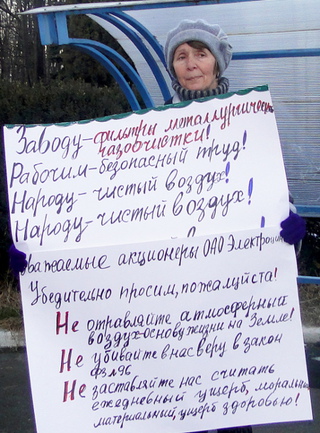 Заводу-фильтры металлургическ
газоочистки!
Рабочим-безопасный труд!
Народу-чистый воздух!
Народу-чистый воздух!
Уважаемые акционеры ОАО Электроцинк
Убедительно просим, пожалуйста!
Не отравляйте атмосферный
воздух-основу жизни на Земле!
Не убивайте в нас веру в закон
ФЗ №96
Не заставляйте нас считать
ежедневный ущерб, моральный
материальный, ущерб здоровью!